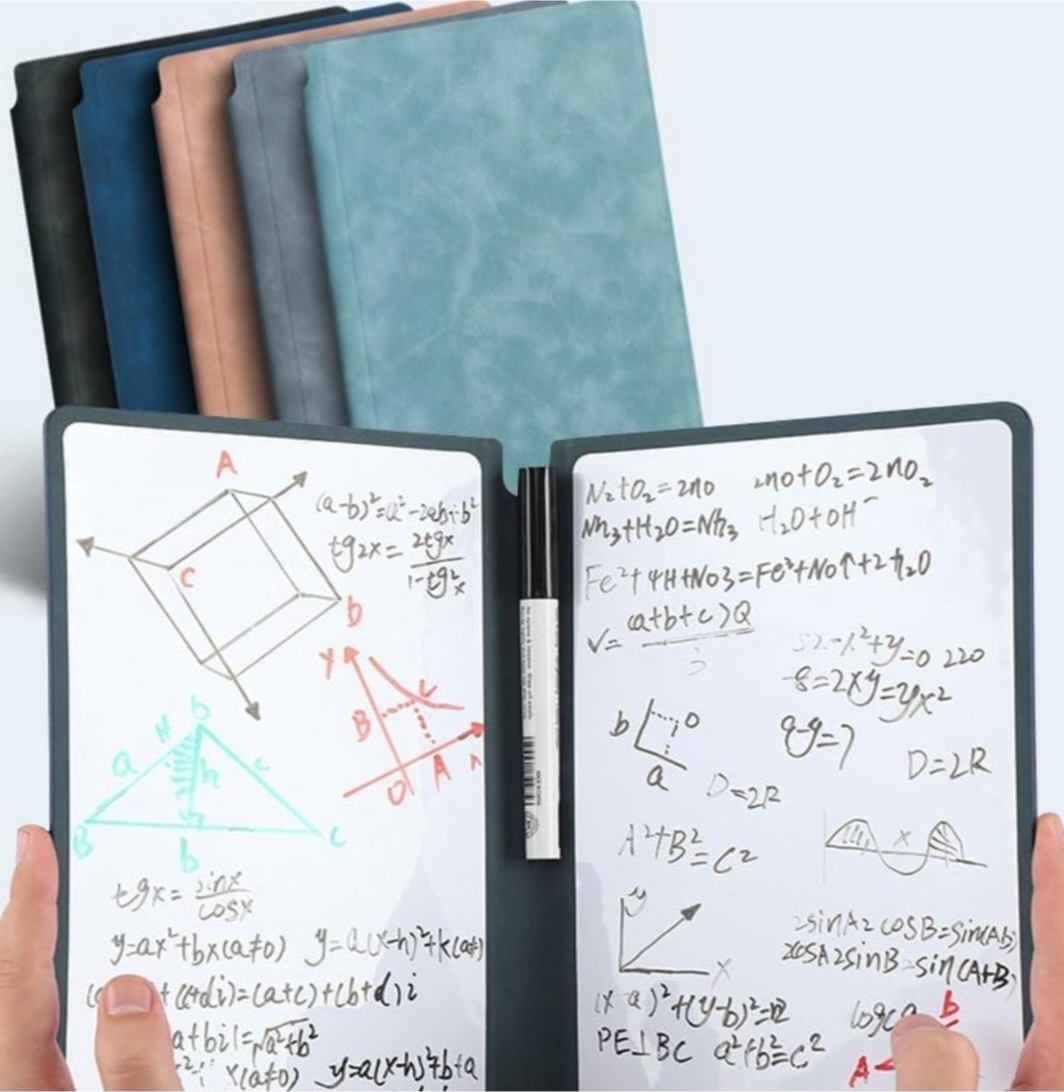 A
(a-b)²=a²-2ab+b²
tg2x=2tgx/1-tg²x
C
b
Y
C
B
A
O
b
H
a
h
c
B
b
C
tgx=sinx/cosx
y=ax²+bx(a≠0) y=a(x-h)²+k(a≠
+(c+di)=(a+c)+(b+d)i
a+bi|=√a²+b²
x(a≠0) y=a(x-h)²+b+a
N₂+O₂=2no 2no+O₂=2nO₂
Nh₃+H₂O=Nh₃ H₂O+OH⁻
Fe²+4H+No3=Fe³+No↑+2h₂O
V=(a+b+c)Q/3
52-x²+y=0 220
-8=2xy=yx²
b
o
8-y=7
a
D=2R
D=2R
A²+B²=C²
x
y
x
2sinA2cosB=sin(Ab)
2cosA2sinB=sin(A+B)
(x-a)²+(y-b)²=
b
PE⊥BC a²+b²=c²
A